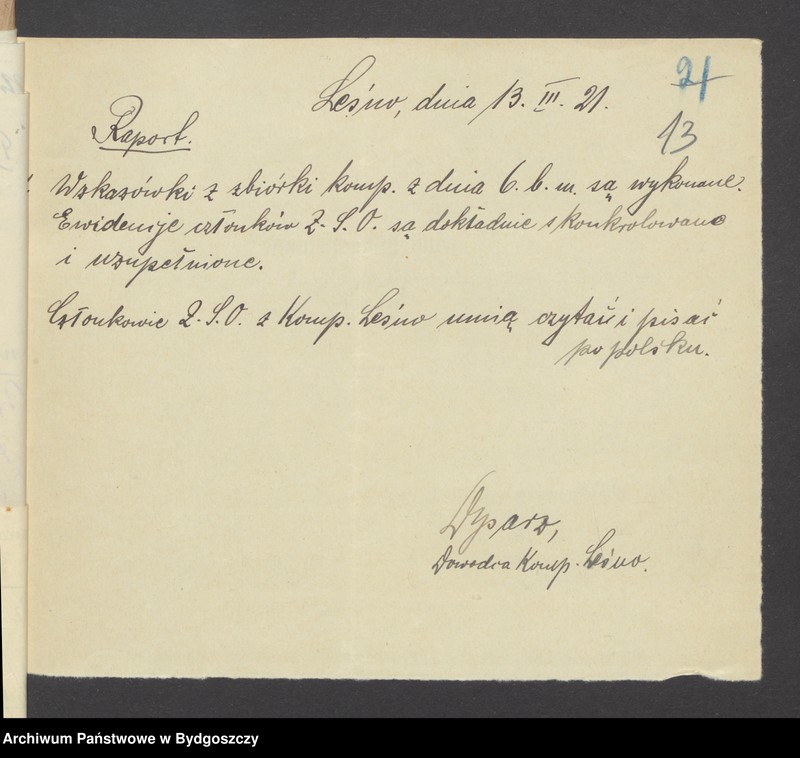 21
Leśno, dnia 13. III. 21.
13
Raport.
Wskazówki z zbiórki komp. z dnia 6. b. m. są wykonane.
Ewidencje członków Z. S. O. są dokładnie skontrolowane
i uzupełnione.
Członkowie Z. S. O. z Komp. Leśno umią czytać i pisać
po polsku.
Dowódca Komp. Leśno.
Archiwum Państwowe w Bydgoszczy